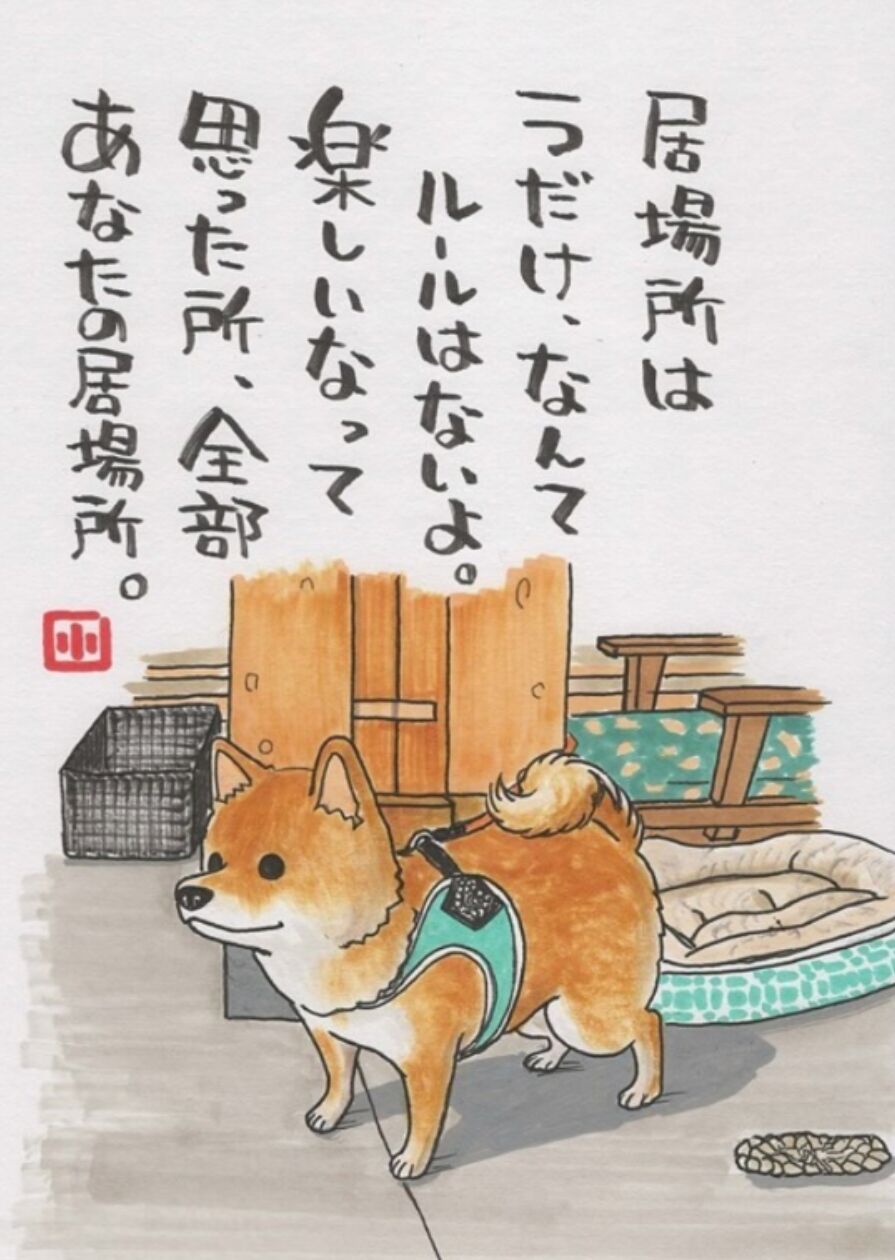 居場所は
一つだけ、なんて
ルールはないよ。
楽しいなって
思った所、全部
あなたの居場所。
小